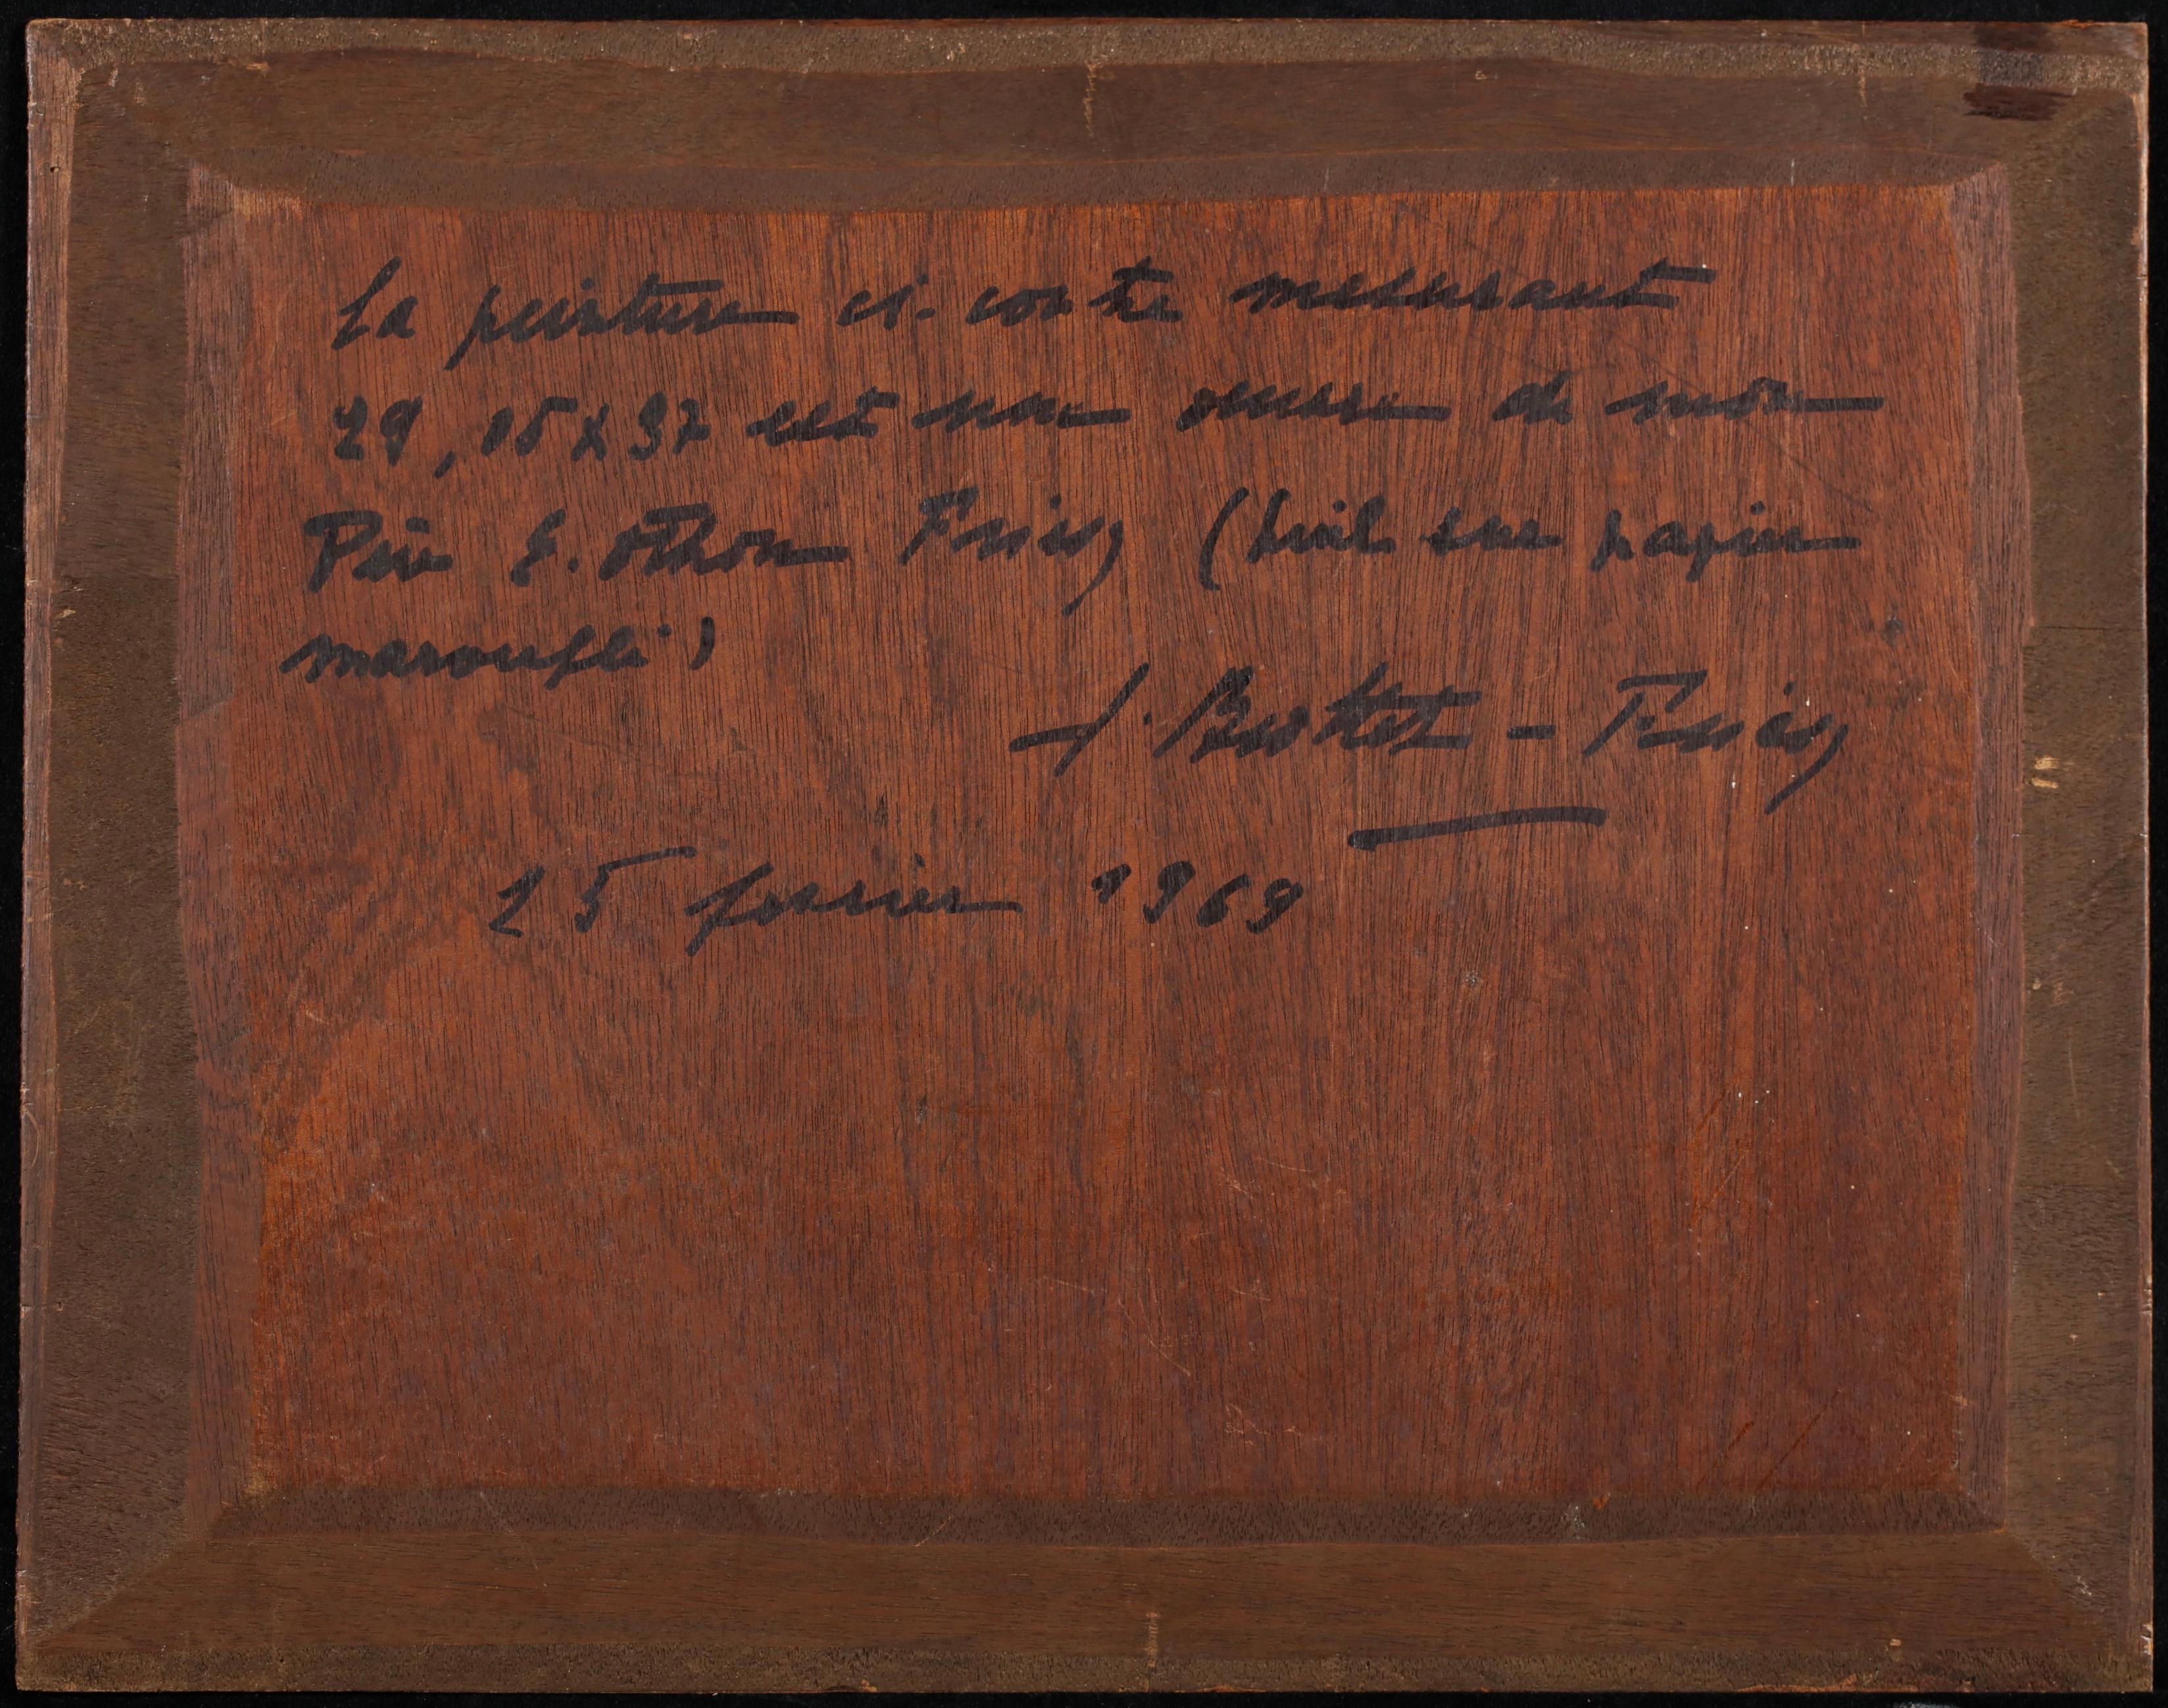 La peinture ci-contre mesurant
29,05 x 37 est une oeuvre de mon
Père E. Othon Friesz (huile sur papier
marouflé)
Friesz
25 fevrier 1969